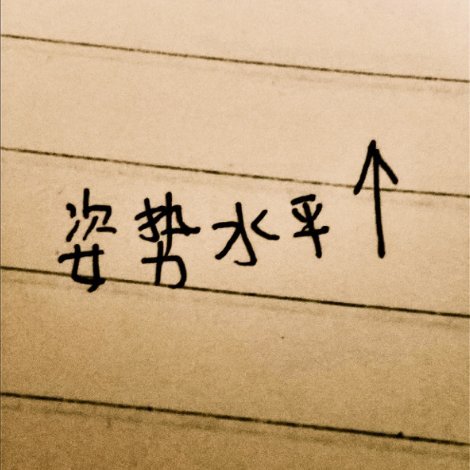 姿势水平↑